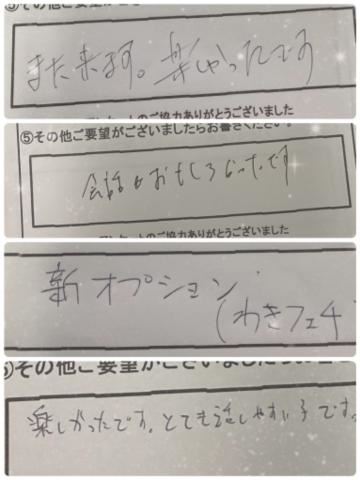 ⑤その他ご要望がござい
また来ます。楽しかったです
アンケートのご協力ありがとうございました
⑤その他ご要望がございましたらお書きください。
会話もおもしろかったです
アンケートのご協力ありがとうございました
新オプション
(わきフェチ
⑤その他ご要望がございましたら
楽しかったです。とても話しやすい子です。